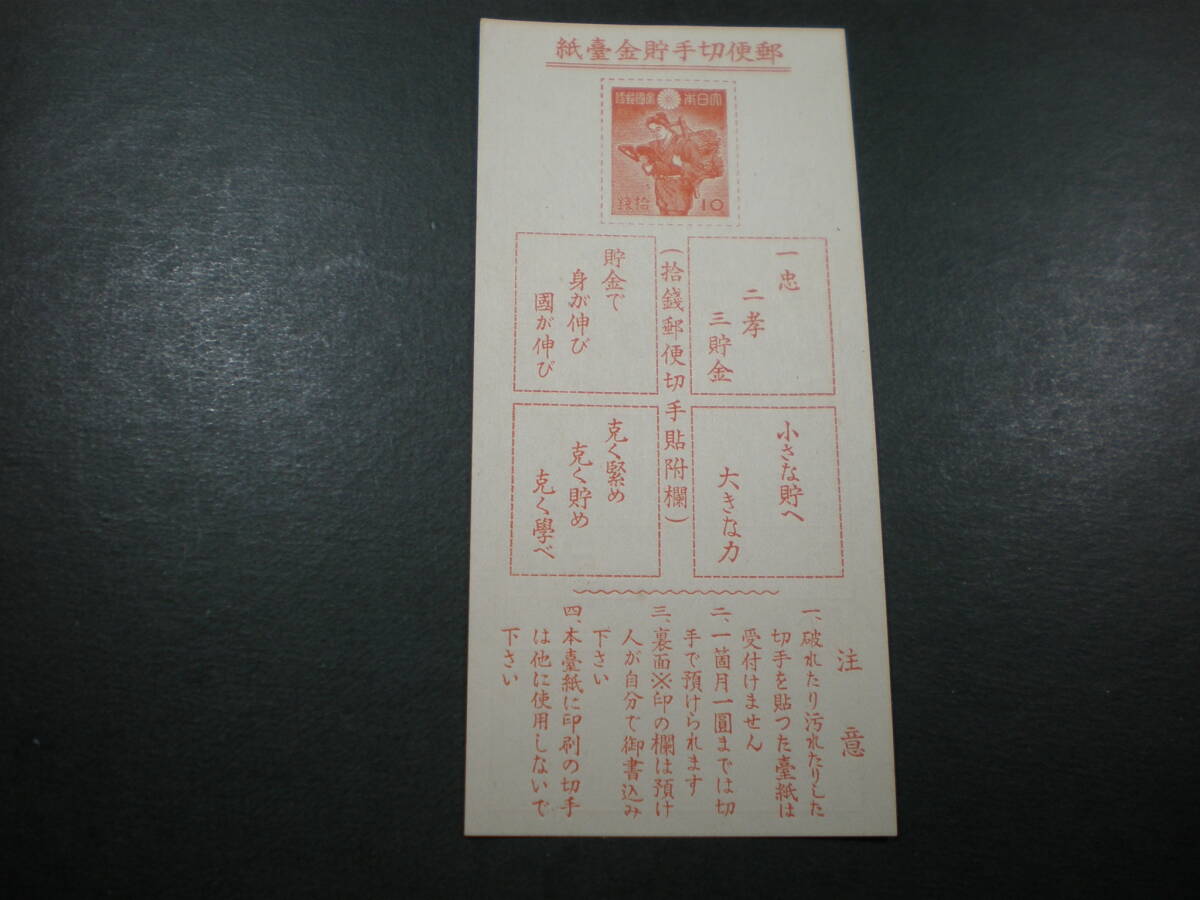 郵便切手貯金臺紙
大日本帝國郵便
拾錢
10
一忠
二孝
三貯金
小さな貯へ
大きな力
(拾錢郵便切手貼附欄)
貯金で
身が伸び
國が伸び
克く緊め
克く貯め
克く學べ
注意
一、破れたり汚れたりした
切手を貼つた臺紙は
受付けません
二、一箇月一圓までは切
手で預けられます
三、裏面※印の欄は預け
人が自分で御書込み
下さい
四、本臺紙に印刷の切手
は他に使用しないで
下さい